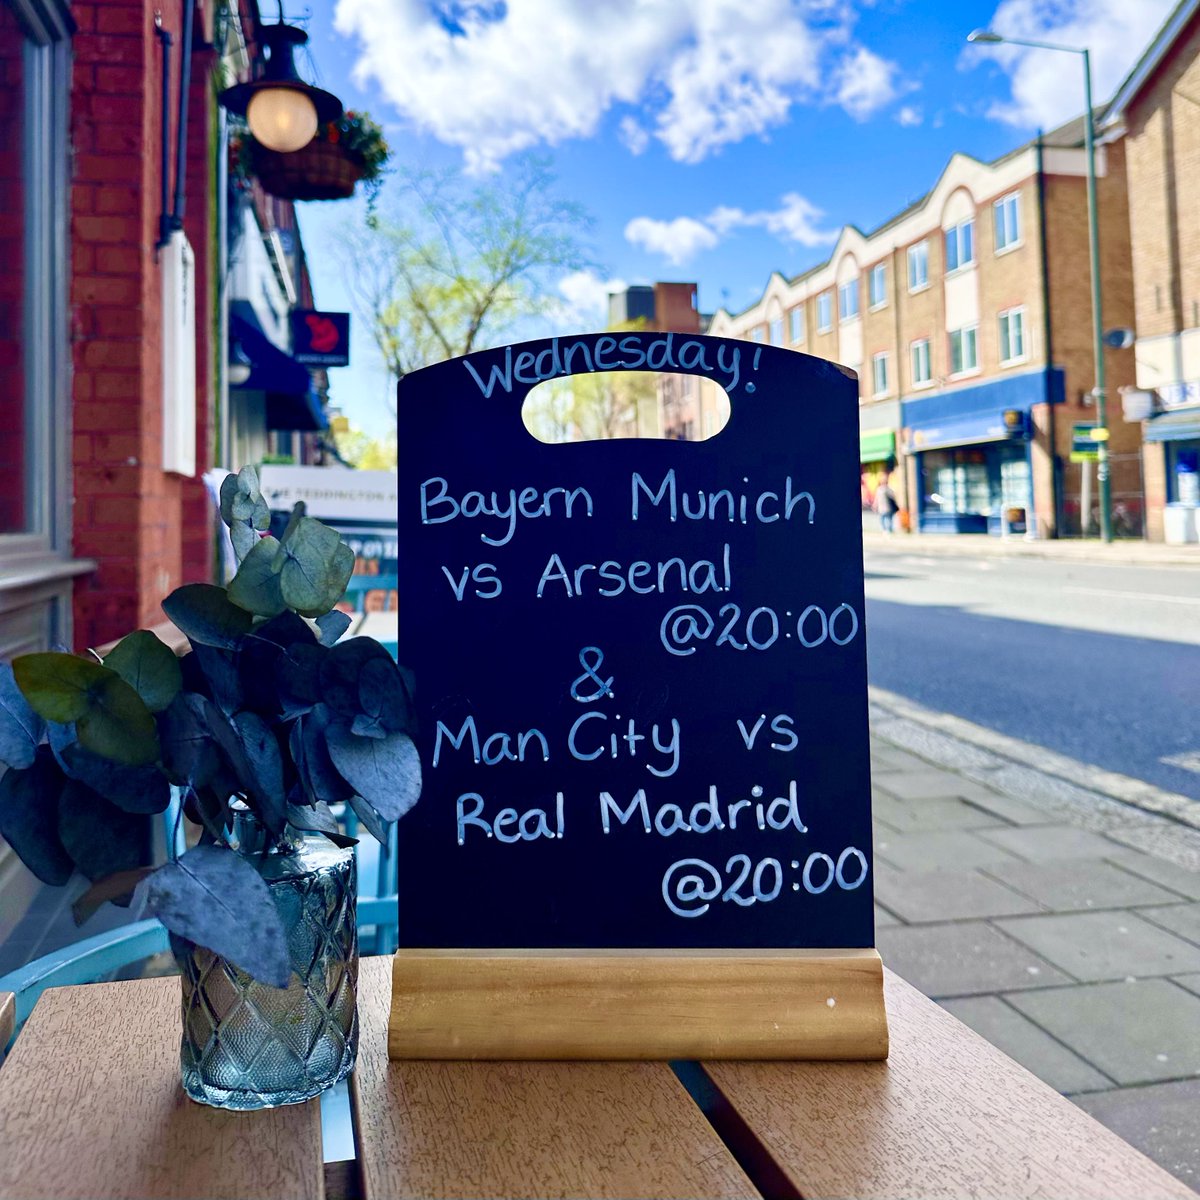 Wednesday!
Bayern Munich
vs Arsenal
@20:00
&
Man City vs
Real Madrid
@20:00
THE TEDDINGTON